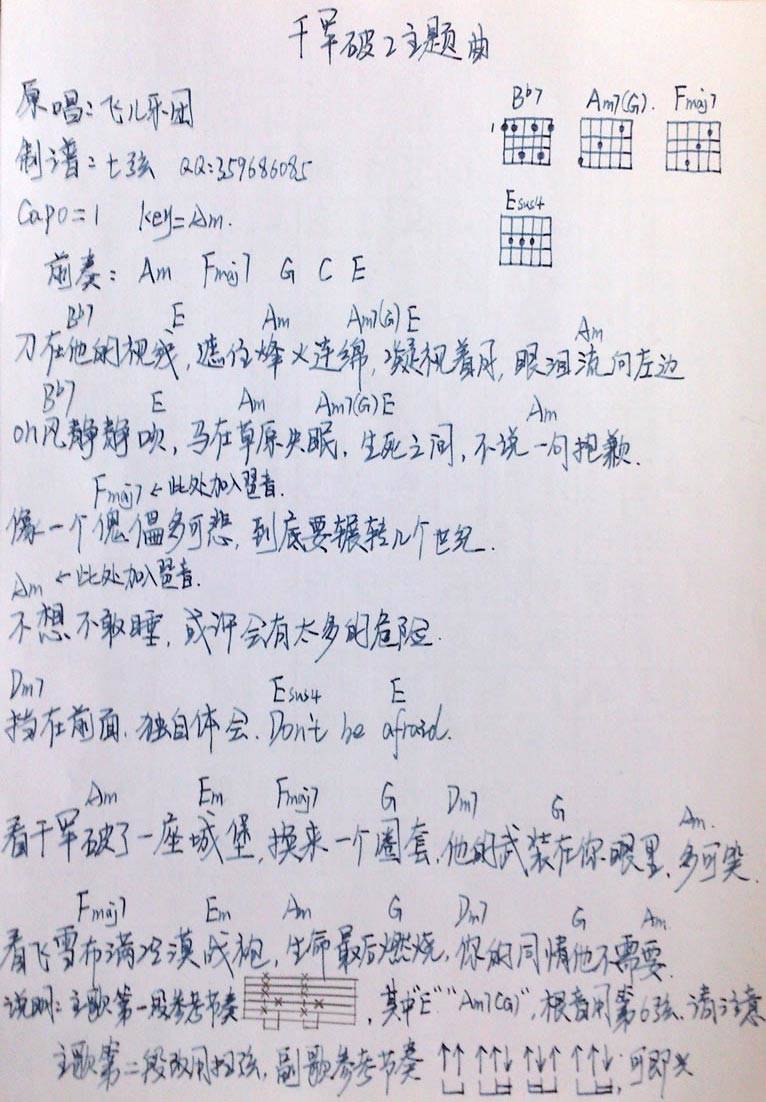 千军破2主题曲
原唱：飞儿乐团
制谱：七弦 QQ:359686085
Capo=1 key=Am.
Bb7 Am7(G). Fmaj7
1
Esus4
前奏： Am Fmaj7 G C E
Bb7 E Am Am7(G) E Am
刀在他的视线，遮住烽火连绵，凝视着月，眼泪流向左边
Bb7 E Am Am7(G) E Am
oh风静静吹，马在草原失眠，生死之间，不说一句抱歉.
Fmaj7 ←此处加入琶音.
像一个傀儡多可悲，到底要辗转几个世纪.
Am ←此处加入琶音.
不想不敢睡，或许会有太多的危险.
Dm7 Esus4 E
挡在前面，独自体会. Don't be afraid.
Am Em Fmaj7 G Dm7 G Am.
看千军破了一座城堡，换来一个圈套，他的武装在你眼里，多可笑.
Fmaj7 Em Am G Dm7 G Am
看飞雪布满冷漠战袍，生命最后燃烧，你的同情他不需要.
说明：主歌第一段参考节奏 ，其中"E" "Am7(G)"，根音用第6弦，请注意
主歌第二段改用扫弦，副歌参考节奏 ↑↑ ↑↑↓ ↑↓↑ ↑↑↓，可即兴